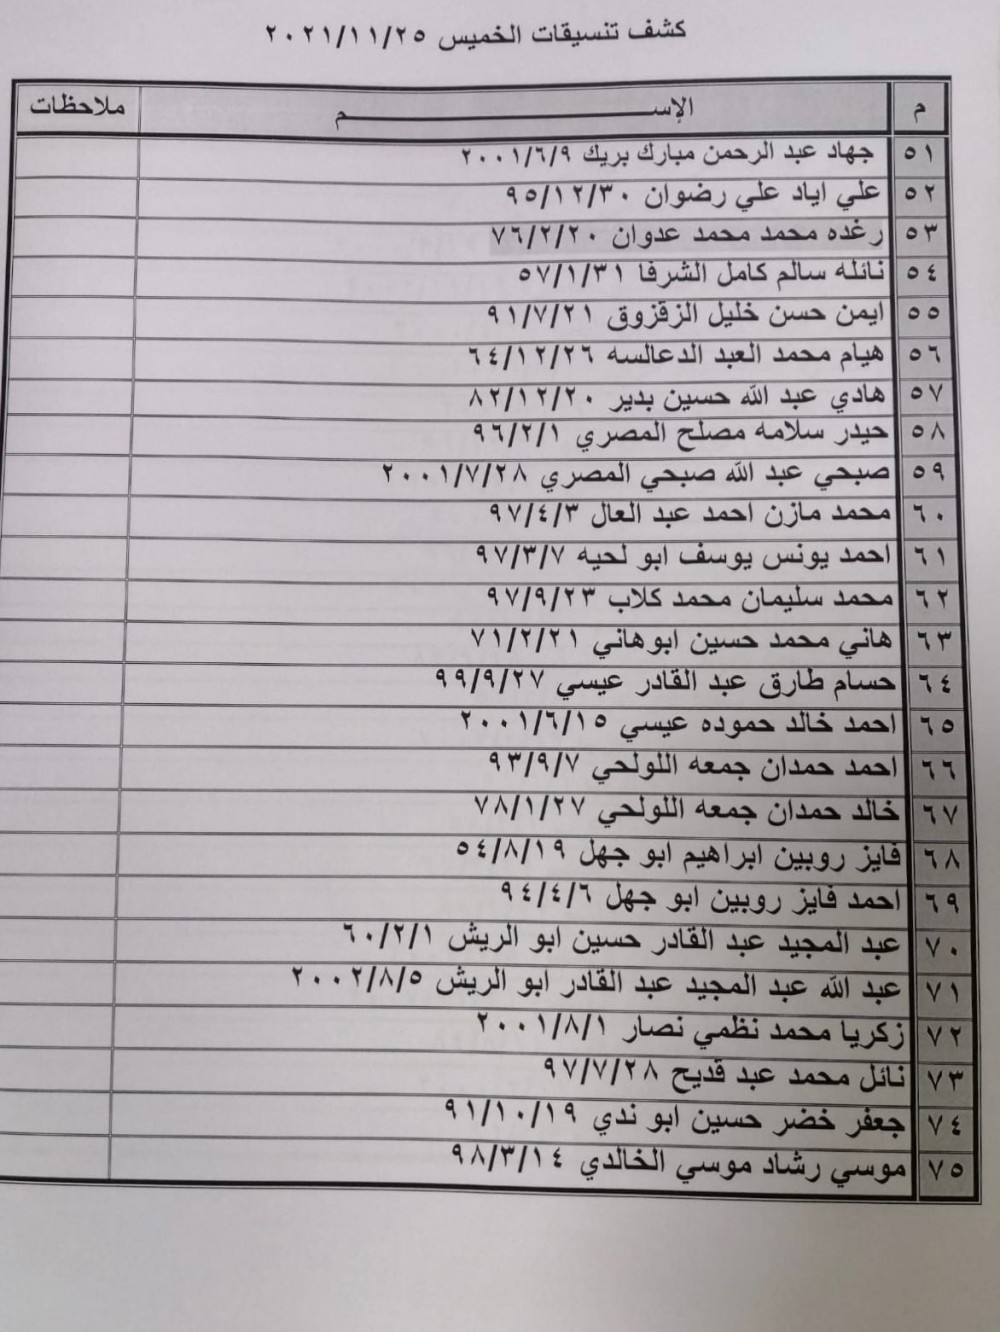 كشف تنسيقات الخميس ٢٠٢١/١١/٢٥
م الإســـــــــم ملاحظات
٥١ جهاد عبد الرحمن مبارك بريك ٢٠٠١/٦/٩
٥٢ علي اياد علي رضوان ٩٥/١٢/٣٠
٥٣ رغده محمد محمد عدوان ٧٦/٢/٢٠
٥٤ نائله سالم كامل الشرفا ٥٧/١/٣١
٥٥ ايمن حسن خليل الزقزوق ٩١/٧/٢١
٥٦ هيام محمد العبد الدعالسه ٦٤/١٢/٢٦
٥٧ هادي عبد الله حسين بدير ٨٢/١٢/٢٠
٥٨ حيدر سلامه مصلح المصري ٩٦/٢/١
٥٩ صبحي عبد الله صبحي المصري ٢٠٠١/٧/٢٨
٦٠ محمد مازن احمد عبد العال ٩٧/٤/٣
٦١ احمد يونس يوسف ابو لحيه ٩٧/٣/٧
٦٢ محمد سليمان محمد كلاب ٩٧/٩/٢٣
٦٣ هاني محمد حسين ابوهاني ٧١/٢/٢١
٦٤ حسام طارق عبد القادر عيسي ٩٩/٩/٢٧
٦٥ احمد خالد حموده عيسي ٢٠٠١/٦/١٥
٦٦ احمد حمدان جمعه اللولحي ٩٣/٩/٧
٦٧ خالد حمدان جمعه اللولحي ٧٨/١/٢٧
٦٨ فايز روبين ابراهيم ابو جهل ٥٤/٨/١٩
٦٩ احمد فايز روبين ابو جهل ٩٤/٤/٦
٧٠ عبد المجيد عبد القادر حسين ابو الريش ٦٠/٢/١
٧١ عبد الله عبد المجيد عبد القادر ابو الريش ٢٠٠٢/٨/٥
٧٢ زكريا محمد نظمي نصار ٢٠٠١/٨/١
٧٣ نائل محمد عبد قديح ٩٧/٧/٢٨
٧٤ جعفر خضر حسين ابو ندي ٩١/١٠/١٩
٧٥ موسي رشاد موسي الخالدي ٩٨/٣/١٤